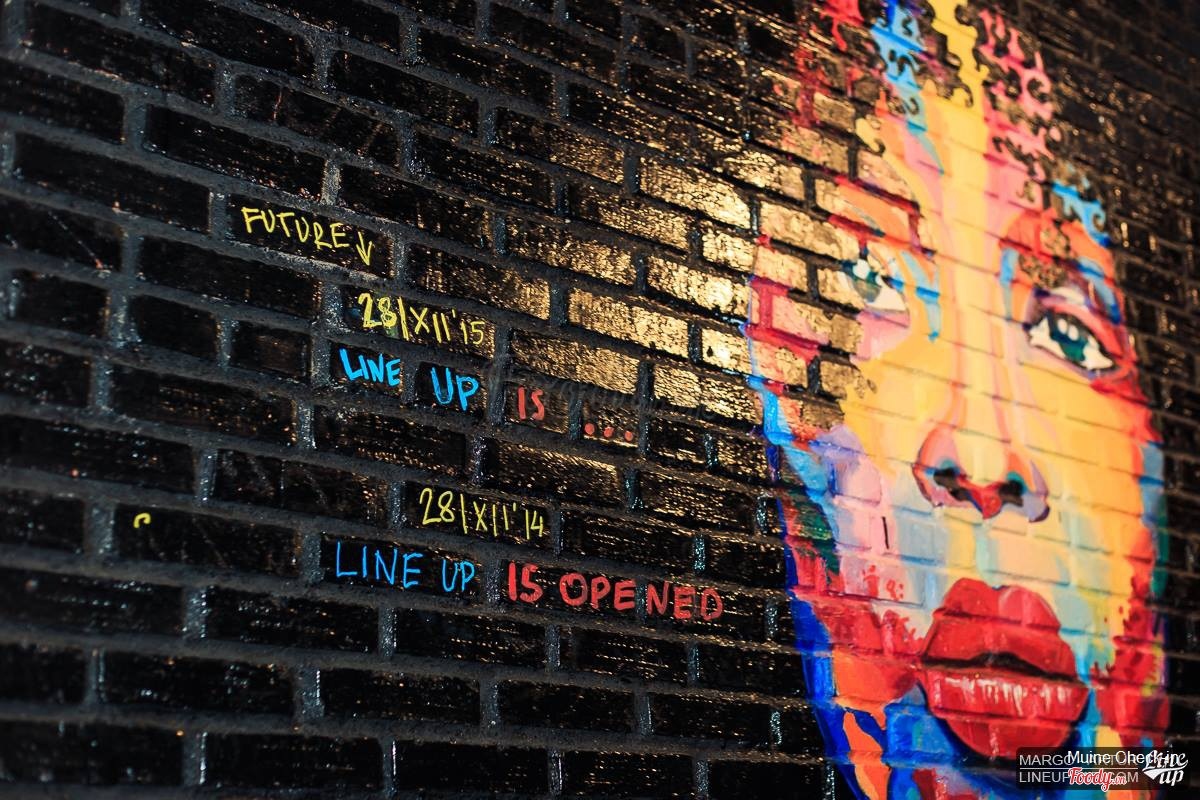 FUTURE ↓
28|XII'15
LINE UP IS ...
28|XII'14
LINE UP IS OPENED
Muine Check-in
Foody.vn
Line up